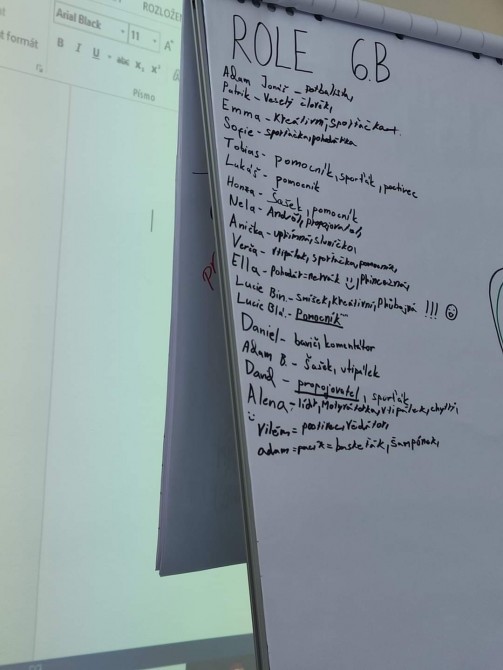 ROZLOŽE
Arial Black 11 A
formát B I U abc X₂ X²
Písmo
ROLE 6.B
Adam Jonáš - fotbalista,
Patrik - Veselý člověk,
Emma - Kreativní, Sportňačka
Sofie - sportňačka, pohodářka
Tobias - pomocník, sporťák, poctivec
Lukáš - pomocník
Honza - Šašek, pomocník
Nela - propojovatel,
Anička - upřímná, sluníčko,
Verča - vtipálek, sportňačka,
Ella - Pohodář = netvák :), Princezna,
Lucie Bin. - smíšek, kreativní, !!! ☺
Lucie Bla. - Pomocník
Daniel - bavič, komentátor
Adam B. - Šašek, vtipálek
David - propojovatel, sporťák
Alena - lídr, Motyvátorka, vtipálek, chytrá,
Vilém = poctivec, Vědátor,
adam = = baskeťák, šampónek,